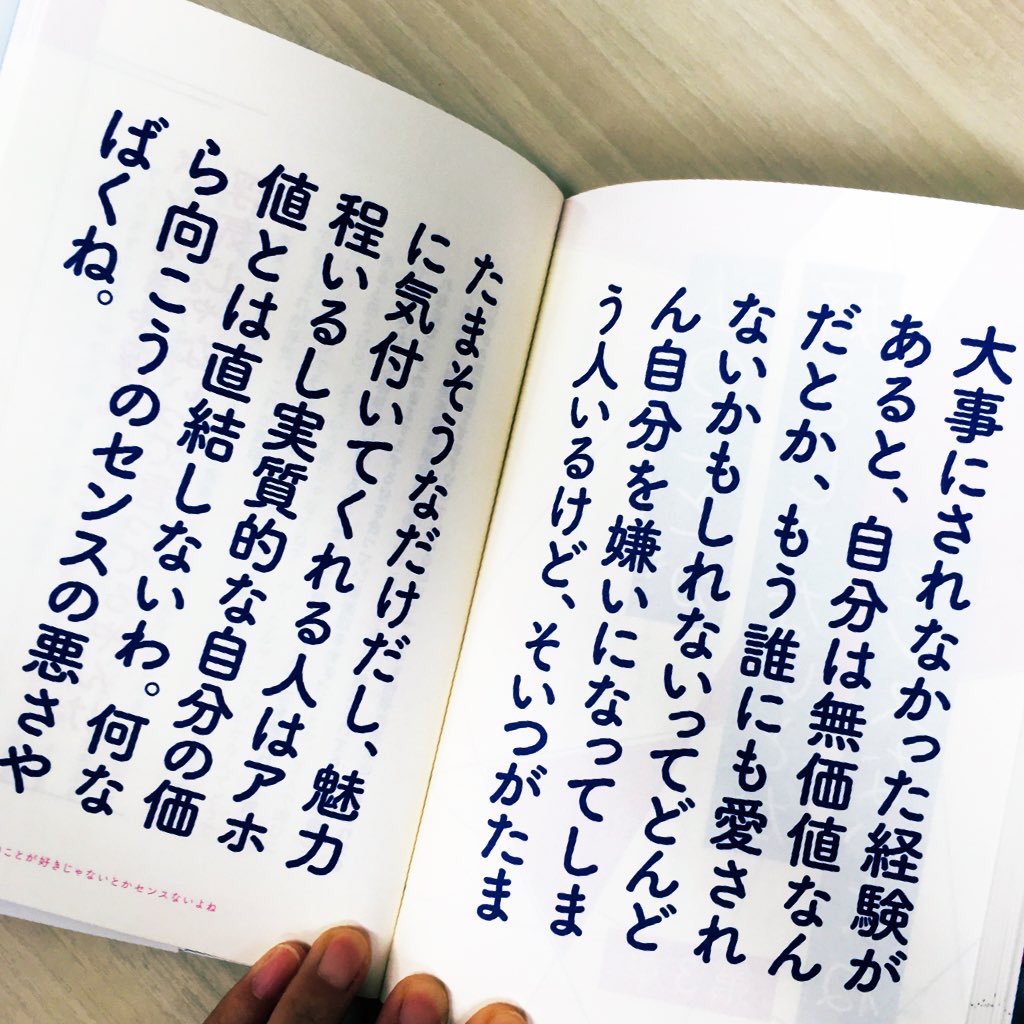 大事にされなかった経験が
あると、自分は無価値なん
だとか、もう誰にも愛され
ないかもしれないってどんど
ん自分を嫌いになってしま
う人いるけど、そいつがたま
たまそうなだけだし、魅力
に気付いてくれる人はアホ
程いるし実質的な自分の価
値とは直結しないわ。何な
ら向こうのセンスの悪さや
ばくね。
ことが好きじゃないとかセンスないよね